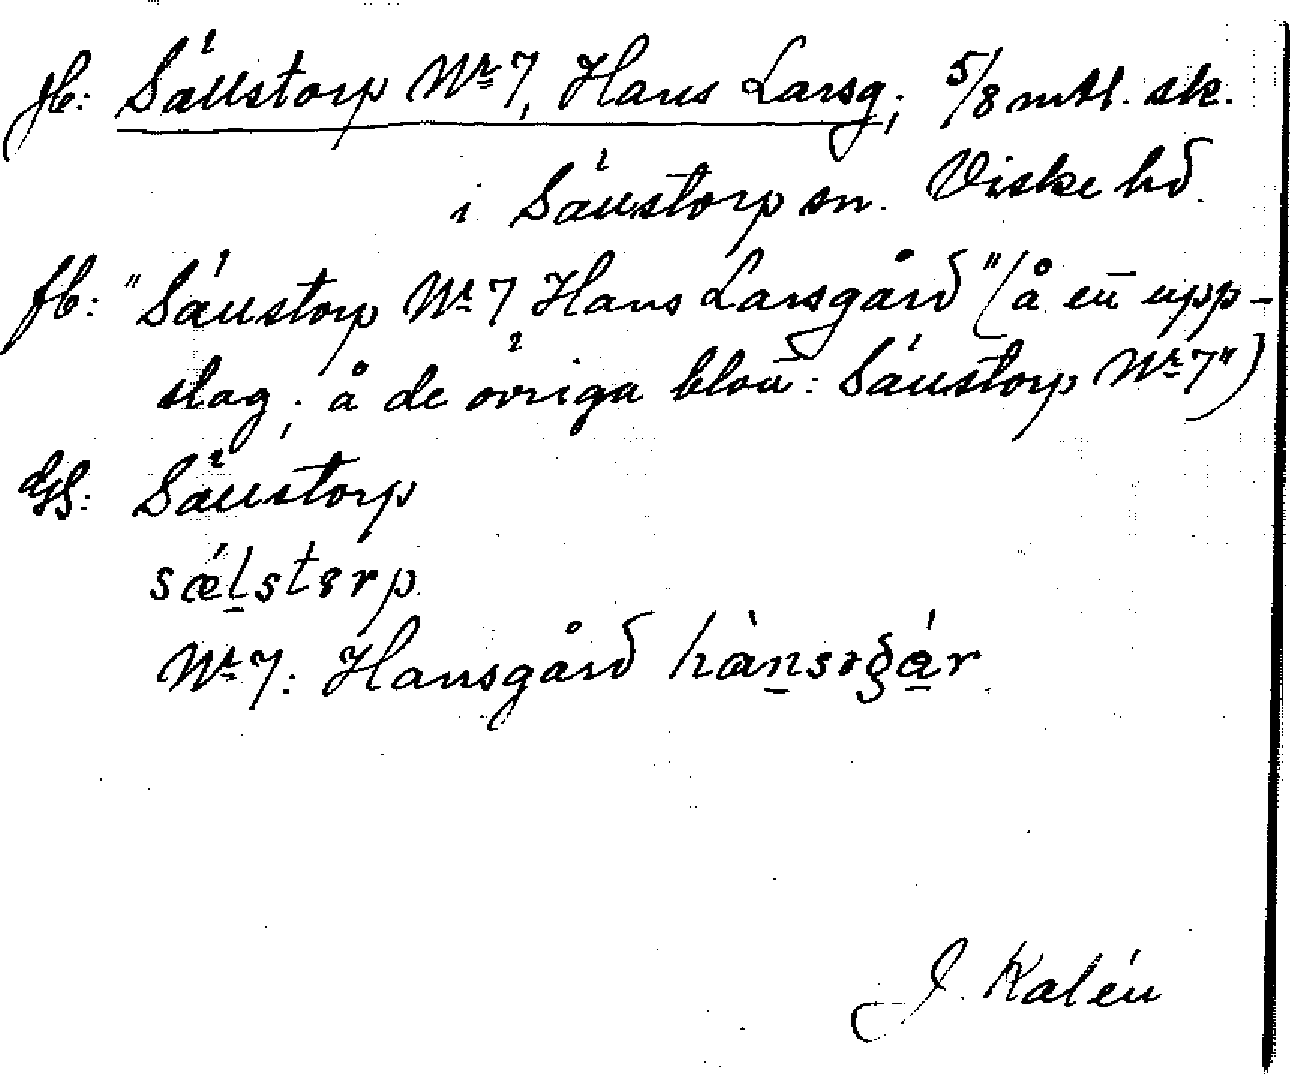 Jb: Sällstorp Nr 7, Hans Larsg; 5/8 mtl. sk.
i Sällstorp sn. Viske hd.
fb: "Sällstorp Nr 7 Hans Larsgård" (å en upp-
slag; å de övriga blott: Sällstorp Nr 7")
GS: Sällstorp
sǽl̠stɐrp
Nr 7: Hansgård hànsɐgár
J. Kalén